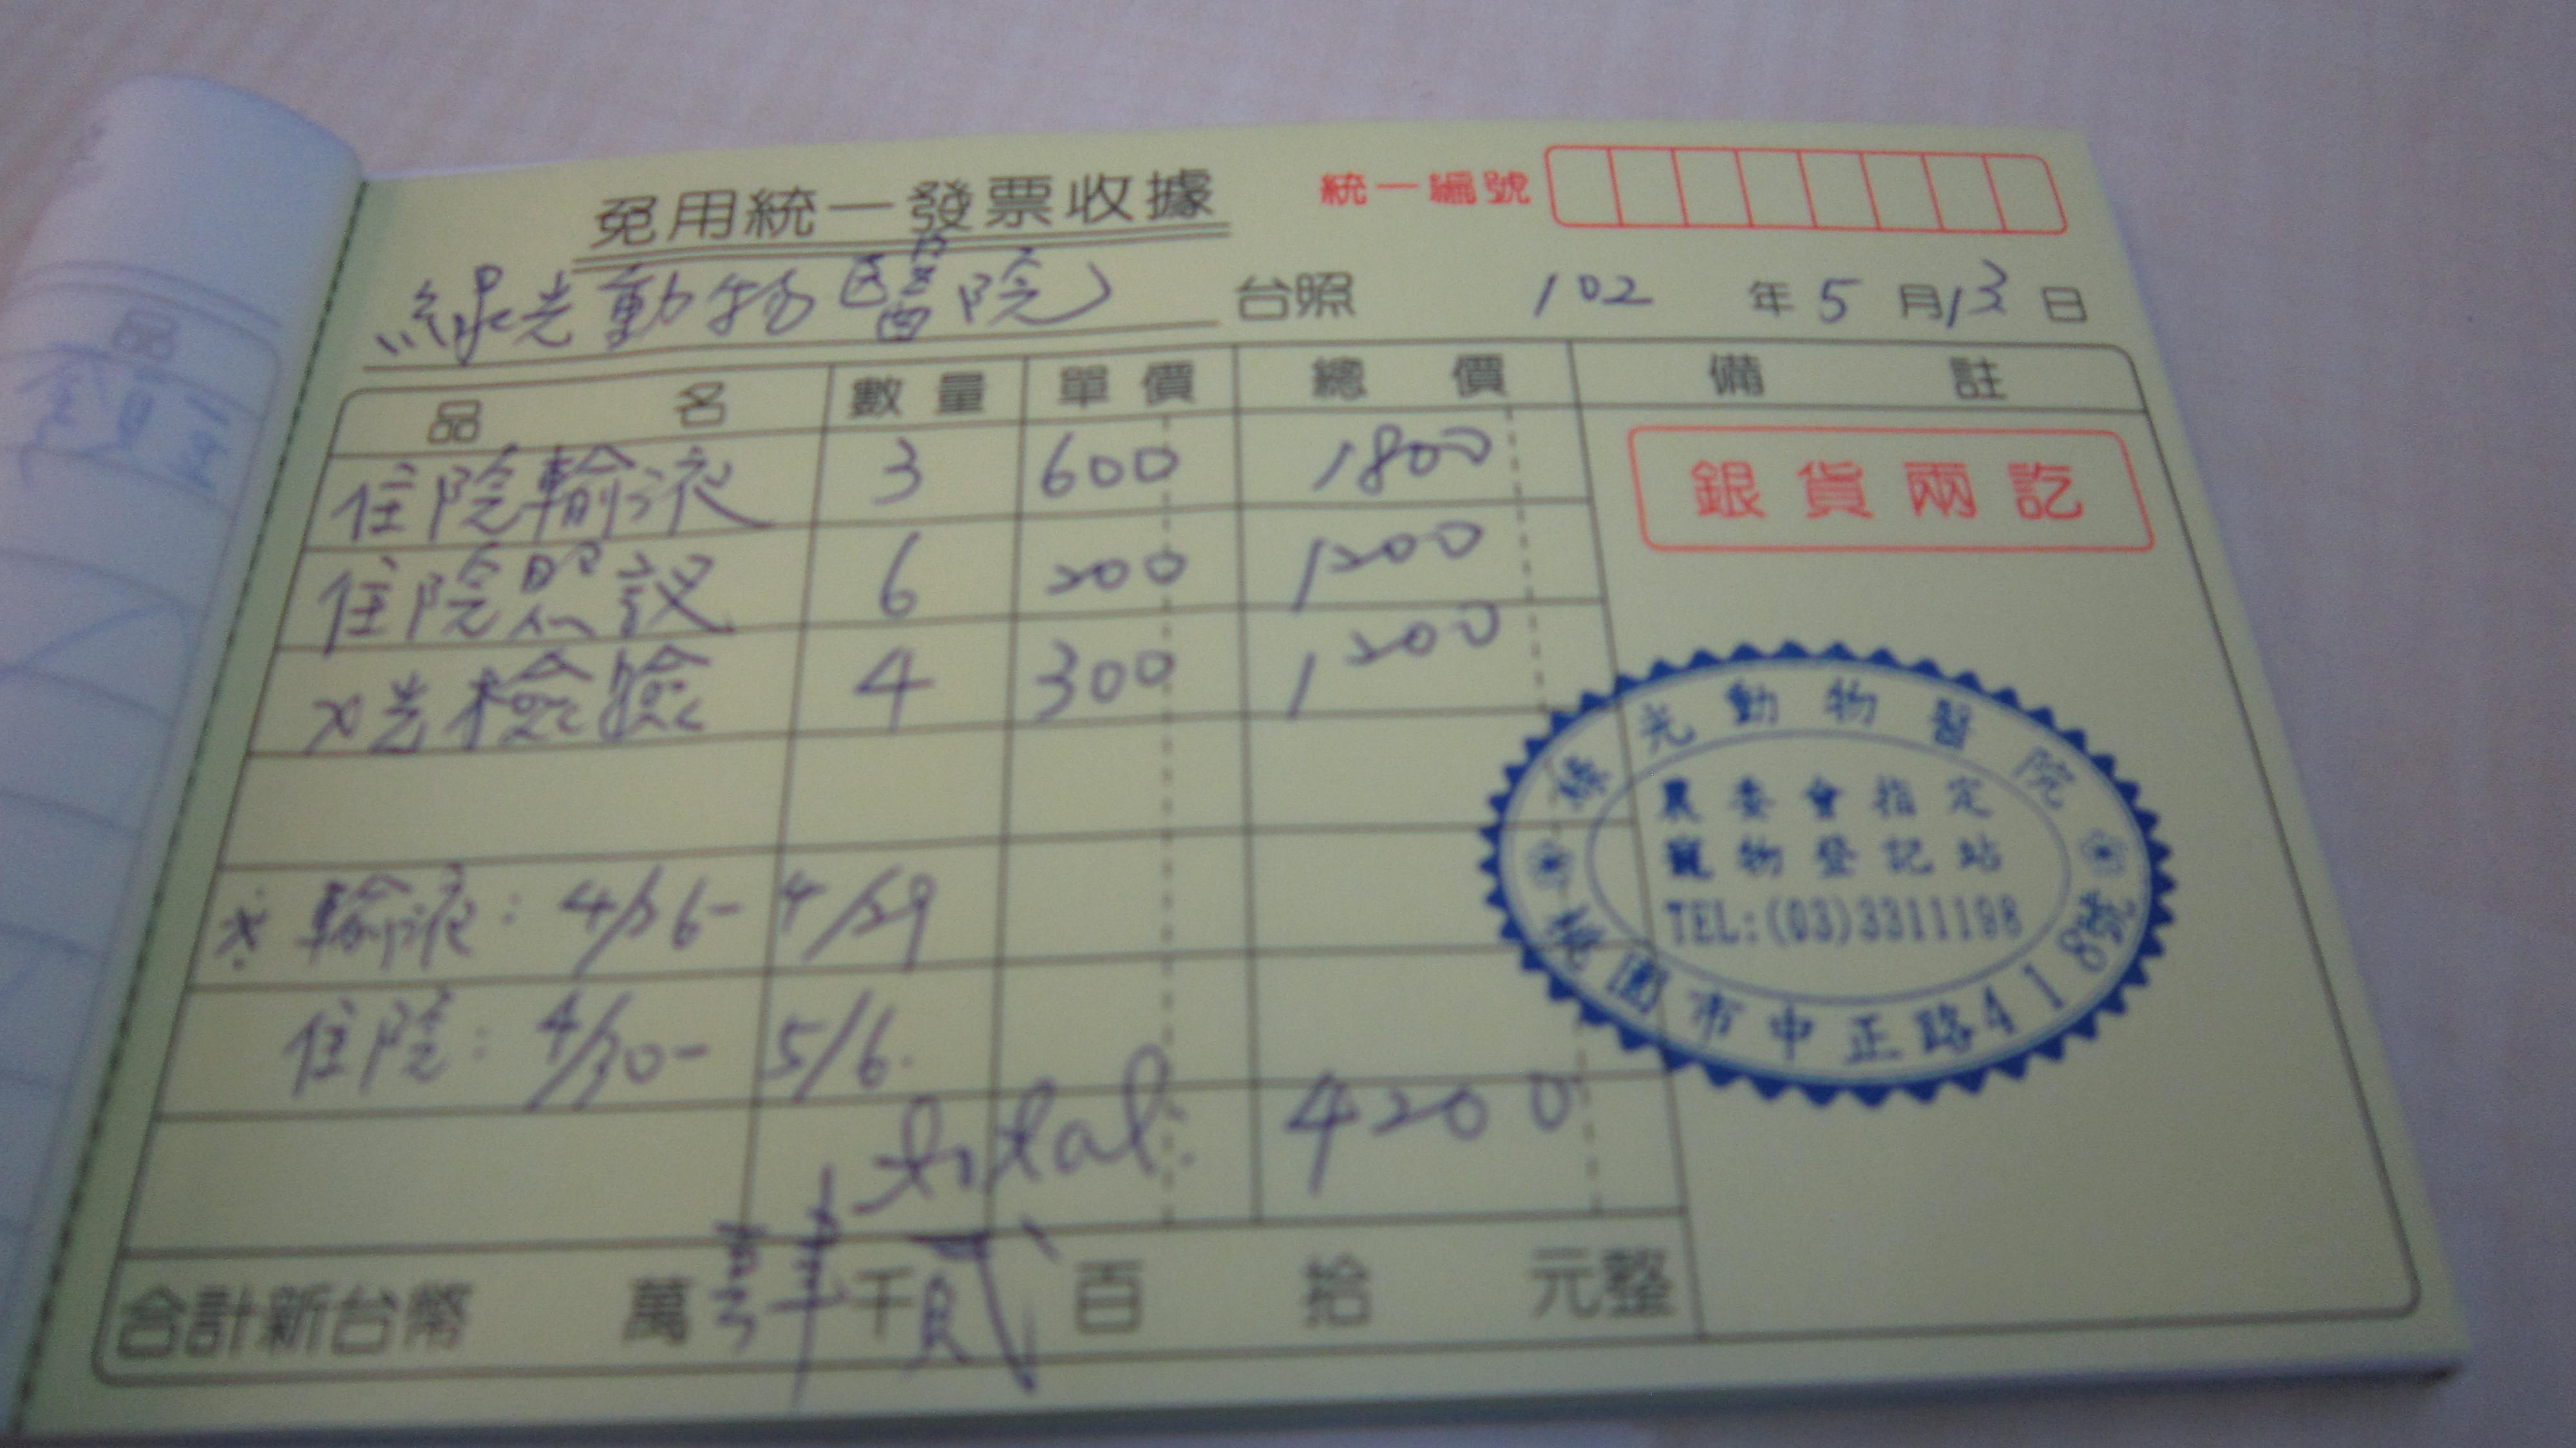 免用統一發票收據
統一編號
綠光動物醫院 台照 102 年 5 月 13 日
品名 數量 單價 總價 備註
住院輸液 3 600 1800
銀貨兩訖
住院照護 6 200 1200
X光檢驗 4 300 1200
綠光動物醫院
農委會指定
寵物登記站
TEL:(03)3311198
桃園市中正路418號
※輸液: 4/26- 4/29
住院: 4/30- 5/6.
total: 4200
合計新台幣 萬 肆千貳 百 拾 元整